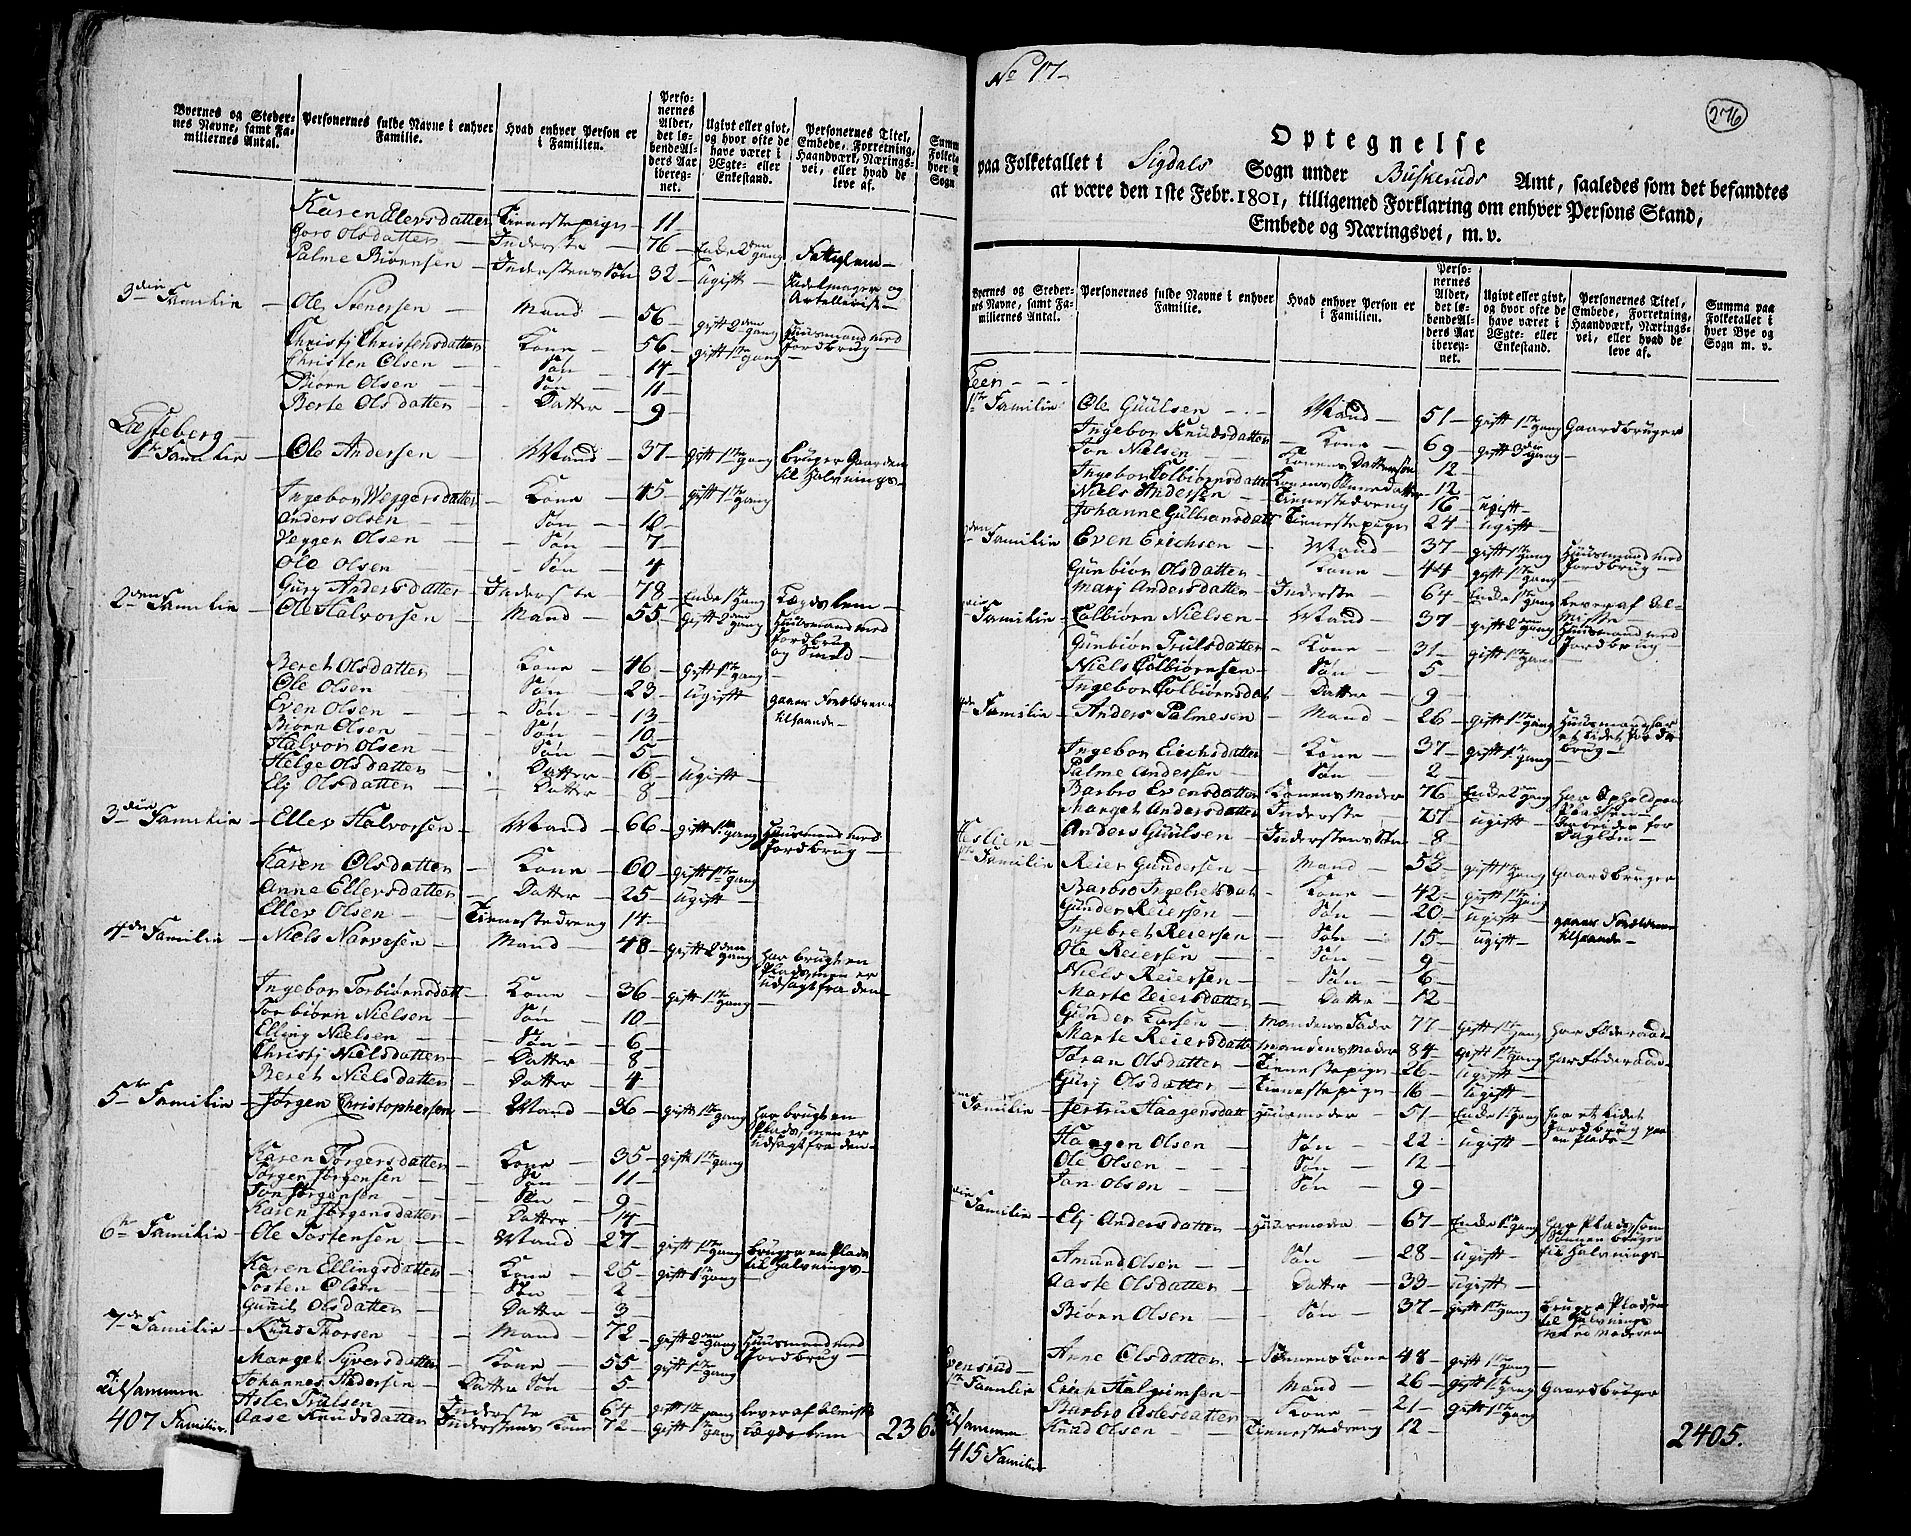 Byernes og Steder-
nes Navne, samt Fa-
miliernes Antal.
Personernes fulde Navne i enhver
Familie.
Hvad enhver Person er
i Familien.
Perso-
nernes
Alder,
det lø-
bende Al-
ders Aar
ibereg-
net.
Ugivt eller givt,
og hvor ofte de
have været i
Ægte- eller
Enkestand.
Personernes Titel,
Embede, Forretning,
Haandværk, Nærings-
vei, eller hvad de
leve af.
Summa
Folketa
hver B
Sogn
Karen Elersdatter Tienestepige 11
Goro Olsdatter Inderste 76 Enke 2den gang Fattiglem
Palme Biørnsen Inderstens Søn 32 ugift Sadelmager og
3die Familie Ole Stenersen Mand 56 gift 2den gang Huusmand med Jordbrug
Christj Christensdatter Kone 56 gift 1ste gang
Christen Olsen Søn 14
Biørn Olsen Søn 11
Berte Olsdatter Datter 9
1ste Familie Ole Andersen Mand 37 gift 1ste gang bruger Gaarden til Halvnings
Ingebor Weggersdatter Kone 45 gift 1ste gang
Anders Olsen Søn 10
Vegger Olsen Søn 7
Ole Olsen Søn 4
Gury Andersdatter Inderste 78 Enke 1ste gang Lægdslem
2den Familie Ole Halvorsen Mand 55 gift 2den gang Huusmand med Jordbrug og Smed
Beret Olsdatter Kone 46 gift 1ste gang
Ole Olsen Søn 23 ugift gaaer Forældrene tilhaande
Even Olsen Søn 13
Biørn Olsen Søn 10
Halvor Olsen Søn 5
Helge Olsdatter Datter 16 ugift
Elj Olsdatter Datter 8
3die Familie Ellev Halvorsen Mand 66 gift 1ste gang Huusmand med Jordbrug
Karen Olsdatter Kone 60 gift 1ste gang
Anne Ellevsdatter Datter 25 ugift
Ellev Olsen Tienestedreng 14
4de Familie Niels Narvesen Mand 48 gift 2den gang har brugt en Plads, men er udsagt fra den
Ingebor Torbiørnsdatt Kone 36 gift 1ste gang
Torbiørn Nielsen Søn 10
Elling Nielsen Søn 6
Christj Nielsdatter Datter 8
Beret Nielsdatter Datter 4
5te Familie Jørgen Christophersen Mand 36 gift 1ste gang har brugt en Plads, men er udsagt fra den
Karen Torgersdatter Kone 35 gift 1ste gang
Torger Jørgensen Søn 11
Jon Jørgensen Søn 9
Karen Jørgensdatter Datter 14
6te Familie Ole Tostensen Mand 27 gift 1ste gang bruger en Plads til Halvnings
Karen Ellingsdatter Kone 25 gift 1ste gang
Tosten Olsen Søn 2
Gunil Olsdatter Datter 3
7de Familie Knud Thorsen Mand 72 gift 2den gang Huusmand med Jordbrug
Marget Syversdatter Kone 55 gift 1ste gang
Johannes Andersen Datter Søn 5
Tilsammen Asle Trulsen Inderste 64 gift 1ste gang lever af Almisse
407 Familier Aase Knudsdatter Inderstens Kone 72 gift 1ste gang Lægdslem 236
No 17
276
Optegnelse
paa Folketallet i Sigdals Sogn under Buskeruds Amt, saaledes som det befandtes
at være den 1ste Febr. 1801, tilligemed Forklaring om enhver Persons Stand,
Embede og Næringsvei, m. v.
Byernes og Steder-
nes Navne, samt Fa-
miliernes Antal.
Personernes fulde Navne i enhver
Familie.
Hvad enhver Person er
i Familien.
Perso-
nernes
Alder,
det lø-
bende Al-
ders Aar
ibereg-
net.
Ugivt eller givt,
og hvor ofte de
have været i
Ægte- eller
Enkestand.
Personernes Titel,
Embede, Forretning,
Haandværk, Nærings-
vei, eller hvad de
leve af.
Summa paa
Folketallet i
hver Bye og
Sogn m. v.
Teen
1ste Familie Ole Guulsen Mand 51 gift 1ste gang Gaardbruger
Ingebor Knudsdatter Kone 69 gift 3die gang
Jon Nielsen Konens Dattersøn 12
Ingebor Colbiørnsdatter Konens Sønnedatter 12
Niels Andersen Tienestedreng 16 ugift
Johanne Gulbransdatt Tienestepige 24 ugift
2den Familie Even Erichsen Mand 37 gift 1ste gang Huusmand med Jordbrug
Gunbiør Olsdatter Kone 44 gift 1ste gang
Marj Andersdatter Inderste 64 Enke 1ste gang lever af Almisse
3die Familie Colbiørn Nielsen Mand 37 gift 2den gang Huusmand med Jordbrug
Gunbiør Trulsdatter Kone 31 gift 1ste gang
Niels Colbiørnsen Søn 5
Ingebor Colbiørnsdat Datter 9
4de Familie Anders Palmesen Mand 26 gift 1ste gang Huusmand har et lidet Jordbrug
Ingebor Erichsdatter Kone 37 gift 1ste gang
Palme Andersen Søn 2
Barbro Evensdatter Konens Moder 76 Enke 1ste gang har Ophold paa Pladsen
Marget Andersdatter Inderste 27 ugift Arbeider for Dagløn
Anders Guulsen Inderstens Søn 8
1ste Familie Reier Gundersen Mand 53 gift 1ste gang Gaardbruger
Barbro Ingebretsdat Kone 42 gift 1ste gang
Gunder Reiersen Søn 20 ugift gaaer Forældrene tilhaande
Ingebret Reiersen Søn 15 ugift
Ole Reiersen Søn 9
Niels Reiersen Søn 6
Marte Reiersdatter Datter 12
Gunder Larsen Mandens Fader 77 gift 1ste gang har Føderaad
Marte Reiersdatte Mandens Moder 84 gift 1ste gang har Føderaad
Jøran Olsdatter Tienestepige 26 ugift
Gurj Olsdatter Tienestepige 16 ugift
Familie Jertru Haagensdatt Huusmoder 51 Enke 1ste gang har et lidet Jordbrug paa en Plads
Haagen Olsen Søn 22 ugift
Ole Olsen Søn 12
Jan Olsen Søn 9
3die Familie Elj Andersdatter Huusmoder 67 Enke 1ste gang har Plads, som Sønnen bruger til Halvnings
Amund Olsen Søn 28 ugift
Aaste Olsdatter Datter 33 ugift
Biørn Olsen Søn 37 gift 1ste gang bruger Pladsen til Halvnings ved Moderen
Anne Olsdatter Sønnens Kone 48 gift 1ste gang
Evensrud
1ste Familie Erich Halgrimsen Mand 26 gift 1ste gang Gaardbruger
Barbro Aslesdatter Kone 21 gift 1ste gang
Tilsammen Knud Olsen Tienestedreng 12
415 Familier 2405.